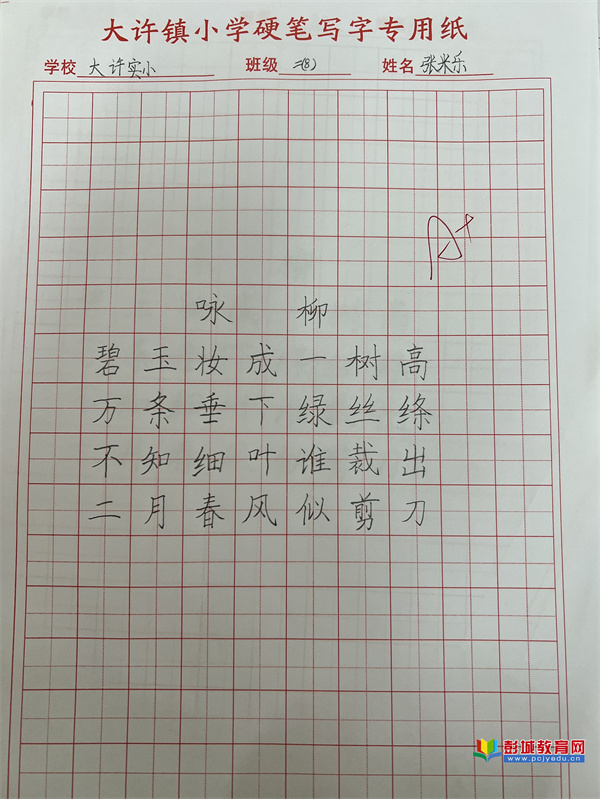 大许镇小学硬笔写字专用纸
学校 大许实小 班级 二(8) 姓名 张米乐
A+
咏柳
碧玉妆成一树高
万条垂下绿丝绦
不知细叶谁裁出
二月春风似剪刀
彭城教育网
www.pcjyedu.cn